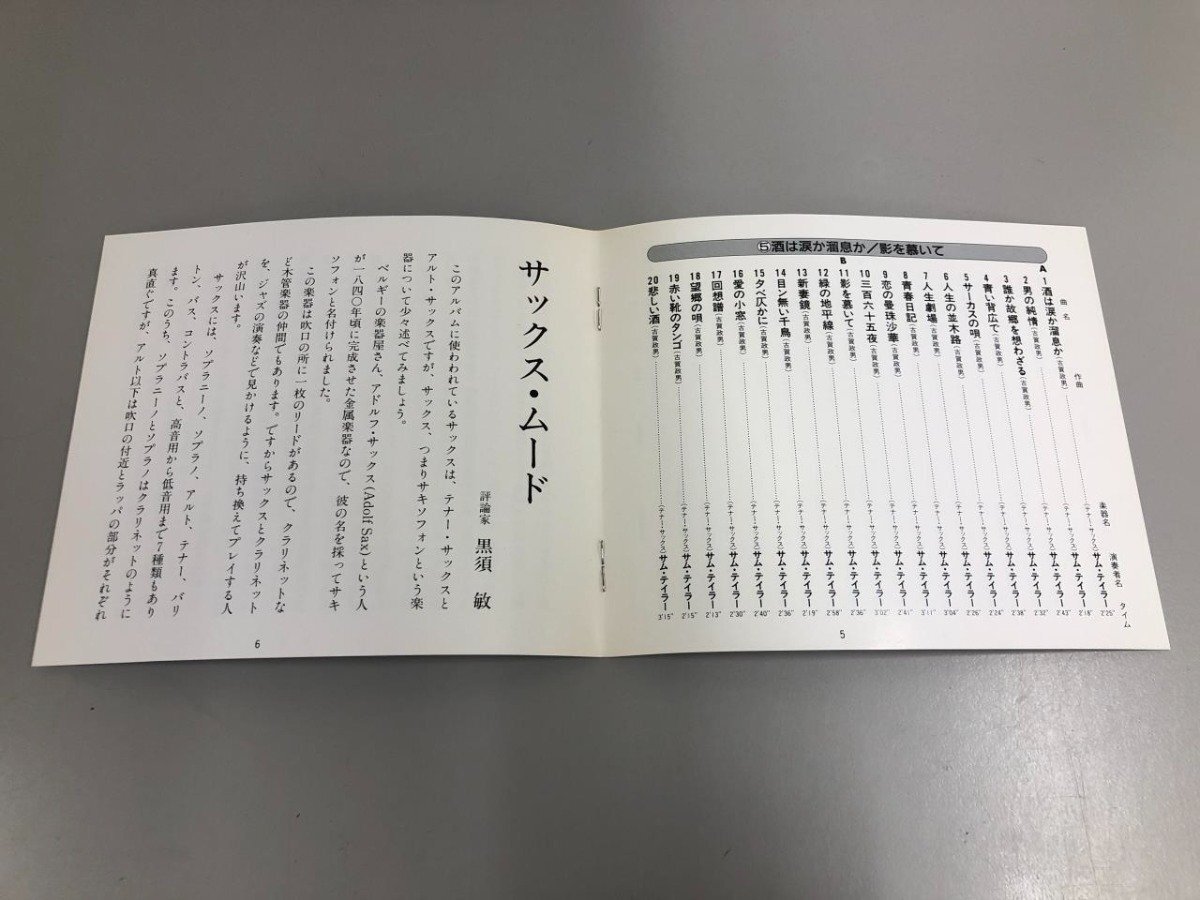 ⑤酒は涙か溜息か/影を慕いて
曲名 作曲 楽器名 演奏者名 タイム
A
1 酒は涙か溜息か(古賀政男) (テナー・サックス)サム・テイラー 2'25"
2 男の純情(古賀政男) (テナー・サックス)サム・テイラー 2'18"
3 誰か故郷を想わざる(古賀政男) (テナー・サックス)サム・テイラー 2'43"
4 青い背広で(古賀政男) (テナー・サックス)サム・テイラー 2'32"
5 サーカスの唄(古賀政男) (テナー・サックス)サム・テイラー 2'38"
6 人生の並木路(古賀政男) (テナー・サックス)サム・テイラー 2'24"
7 人生劇場(古賀政男) (テナー・サックス)サム・テイラー 2'26"
8 青春日記(古賀政男) (テナー・サックス)サム・テイラー 3'04"
9 恋の曼珠沙華(古賀政男) (テナー・サックス)サム・テイラー 3'11"
10 三百六十五夜(古賀政男) (テナー・サックス)サム・テイラー 2'41"
B
11 影を慕いて(古賀政男) (テナー・サックス)サム・テイラー 3'02"
12 緑の地平線(古賀政男) (テナー・サックス)サム・テイラー 2'36"
13 新妻鏡(古賀政男) (テナー・サックス)サム・テイラー 2'58"
14 目ン無い千鳥(古賀政男) (テナー・サックス)サム・テイラー 2'19"
15 夕べ仄かに(古賀政男) (テナー・サックス)サム・テイラー 2'36"
16 愛の小窓(古賀政男) (テナー・サックス)サム・テイラー 2'40"
17 回想譜(古賀政男) (テナー・サックス)サム・テイラー 2'30"
18 望郷の唄(古賀政男) (テナー・サックス)サム・テイラー 2'13"
19 赤い靴のタンゴ(古賀政男) (テナー・サックス)サム・テイラー 2'15"
20 悲しい酒(古賀政男) (テナー・サックス)サム・テイラー 3'15"
5
サックス・ムード
評論家 黒須 敏
このアルバムに使われているサックスは、テナー・サックスと
アルト・サックスですが、サックス、つまりサキソフォンという楽
器について少々述べてみましょう。
ベルギーの楽器屋さん、アドルフ・サックス(Adolf Sax)という人
が一八四〇年頃に完成させた金属楽器なので、彼の名を採ってサキ
ソフォンと名付けられました。
この楽器は吹口の所に一枚のリードがあるので、クラリネットな
ど木管楽器の仲間でもあります。ですからサックスとクラリネット
を、ジャズの演奏などで見かけるように、持ち換えてプレイする人
が沢山います。
サックスには、ソプラニーノ、ソプラノ、アルト、テナー、バリ
トン、バス、コントラバスと、高音用から低音用まで7種類もあり
ます。このうち、ソプラニーノとソプラノはクラリネットのように
真直ぐですが、アルト以下は吹口の付近とラッパの部分がそれぞれ
6